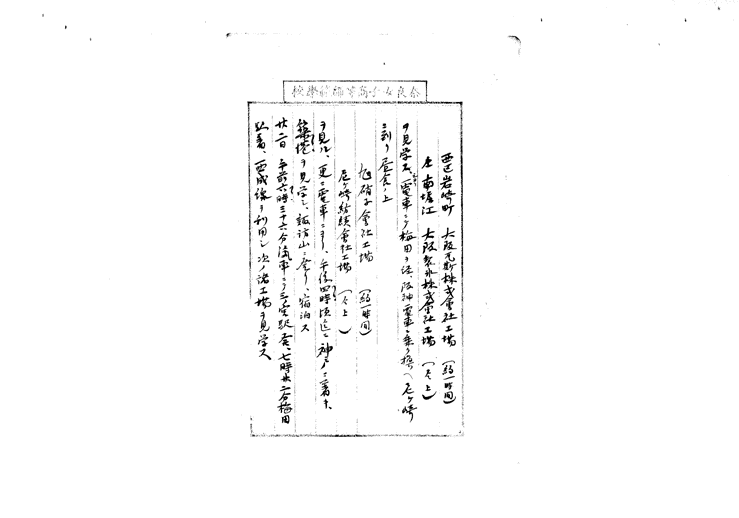 奈良女子高等師範學校
西区岩崎町 大阪瓦斯株式會社工場 (約一時間)
仝 南堀江 大阪製氷株式會社工場 (仝上)
ヲ見学ス、電車ニテ梅田ヲ経、阪神電車ニ乗リ換ヘ尼ヶ崎
ニ到リ昼食ノ上
旭硝子會社工場 (約一時間)
尼ヶ崎紡績會社工場 (仝上)
ヲ見ル、更ニ電車ニヨリ、午後四時頃迄ニ神戸ニ着キ、
築港ヲ見学シ、諏訪山ニ登リ、宿泊ス
廿二日 午前六時三十六分汽車ニテ三ノ宮駅発、七時廿二分梅田
駅着、西成線ヲ利用シ次ノ諸工場ヲ見学ス